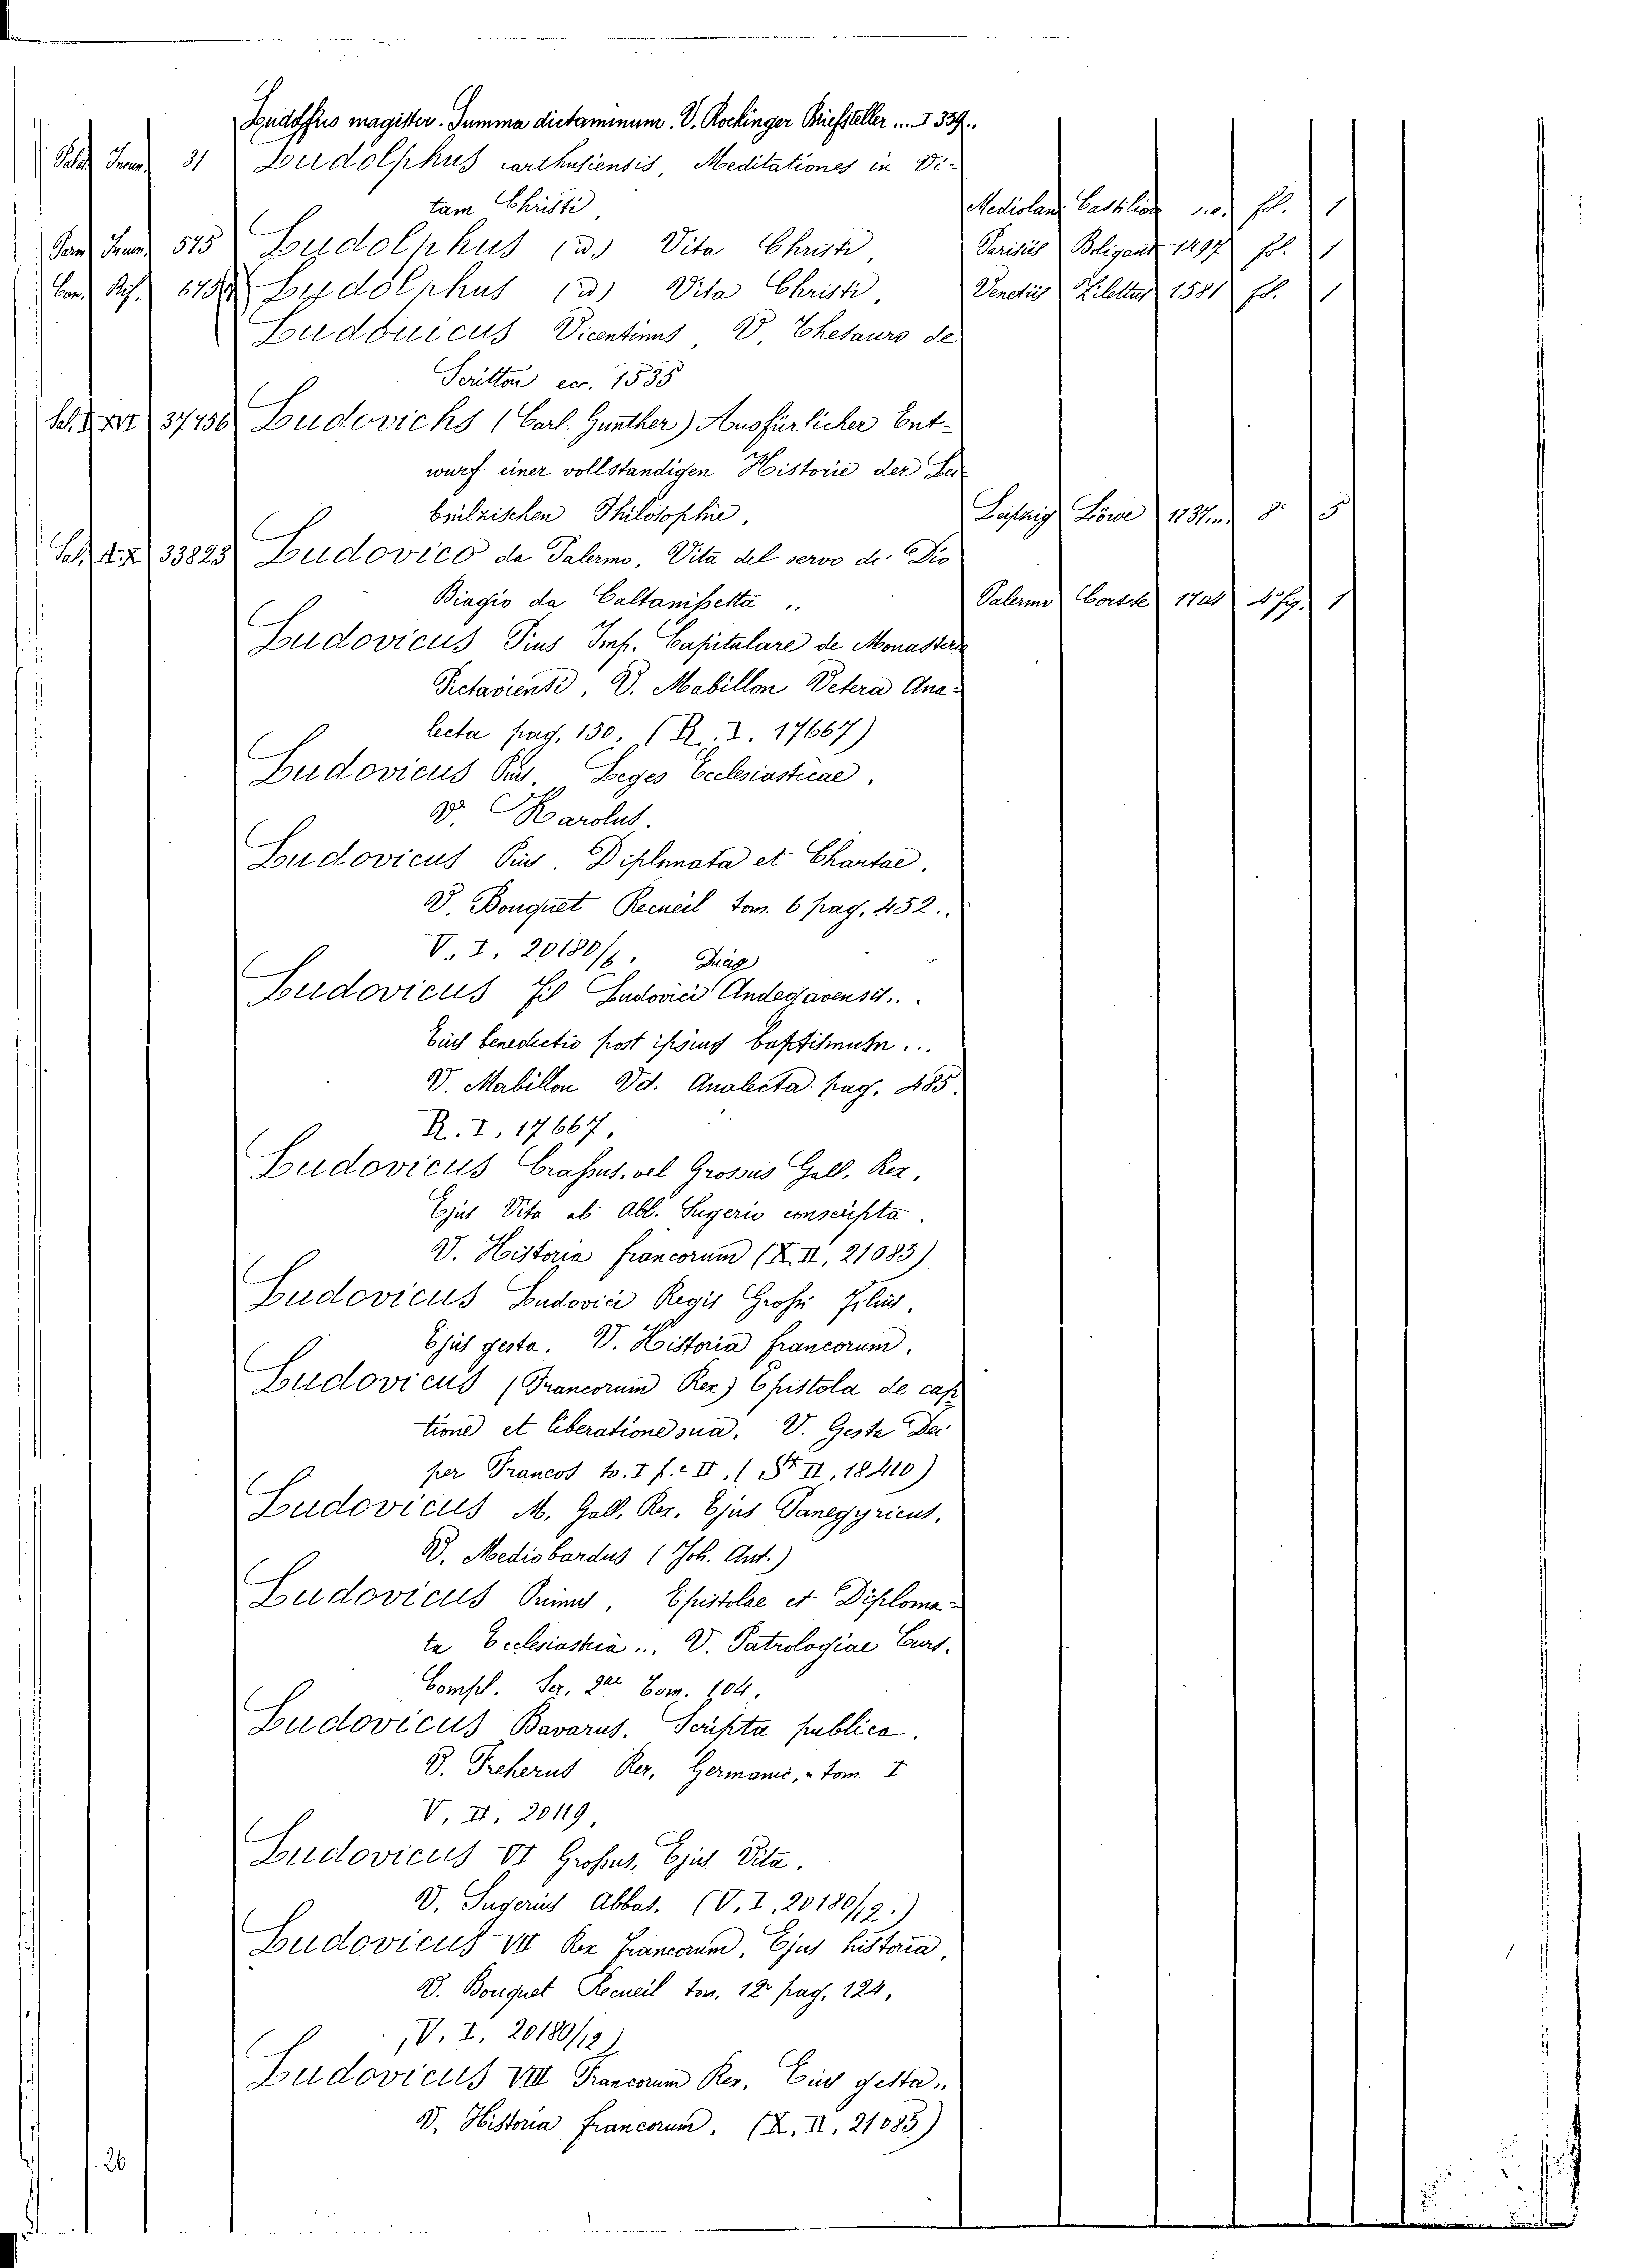 Ludolfus magister. Summa dictaminum. V. Rockinger Briefsteller .... I 339.
31 Ludolphus carthusiensis, Meditationes in Vi-
tam Christi, Mediolan. Castilion s.a. fol. 1
575 Ludolphus (id.) Vita Christi, Parisiis Boligaut 1497 fol. 1
Ludolphus (id) Vita Christi, Venetiis Zilettus 1581 fol. 1
Ludovicus Vicentinus, V. Thesauro de
Scrittori ecc. 1535
37456 Ludovichs (Carl. Gunther) Ausfürlicher Ent-
wurf einer vollständigen Historie der Lei-
bnitzischen Philosophie, Leipzig Löwe 1737 8° 5
33823 Ludovico da Palermo, Vita del servo di Dio
Biagio da Caltanissetta .. Palermo Cortese 1704 4° fig. 1
Ludovicus Pius Imp. Capitulare de Monasterio
Pictaviensi, V. Mabillon Vetera Ana-
lecta pag. 150. (R. I. 17667)
Ludovicus Pius. Leges Ecclesiasticae,
V. Karolus.
Ludovicus Pius. Diplomata et Chartae,
V. Bouquet Recueil tom. 6 pag. 452..
V. I. 20180/6.
Ludovicus fil Ludovici Andegavensis..
Eius benedictio post ipsius baptismum ...
V. Mabillon Vet. Analecta pag. 485.
R. I, 17667,
Ludovicus Crassus, vel Grossus Gall. Rex,
Ejus Vita ab Abb. Sugerio conscripta.
V. Historia francorum (X. II, 21083)
Ludovicus Ludovici Regis Grossi Filius.
Ejus gesta. V. Historia francorum.
Ludovicus (Francorum Rex) Epistola de cap
tione et liberatione sua. V. Gesta Dei
per Francos to. I p. e II, (St II, 18410)
Ludovicus M. Gall. Rex. Ejus Panegyricus,
V. Mediobardus (Joh. Ant.)
Ludovicus Primus, Epistolae et Diploma-
ta Ecclesiastica ... V. Patrologiae Curs.
Compl. Ser. 2ae Tom. 104,
Ludovicus Bavarus. Scripta publica.
V. Freherus Rer. Germanic, - tom. I
V, II, 20119,
Ludovicus VI Grossus, Ejus Vita.
V. Sugerius Abbas. (V, I, 20180/12.)
Ludovicus VII Rex Francorum, Ejus historia,
V. Bouquet Recueil tom. 12° pag. 124,
,V. I, 20180/12)
Ludovicus VIII Francorum Rex, Eius gesta,
V. Historia francorum. (X, II, 21083)
26